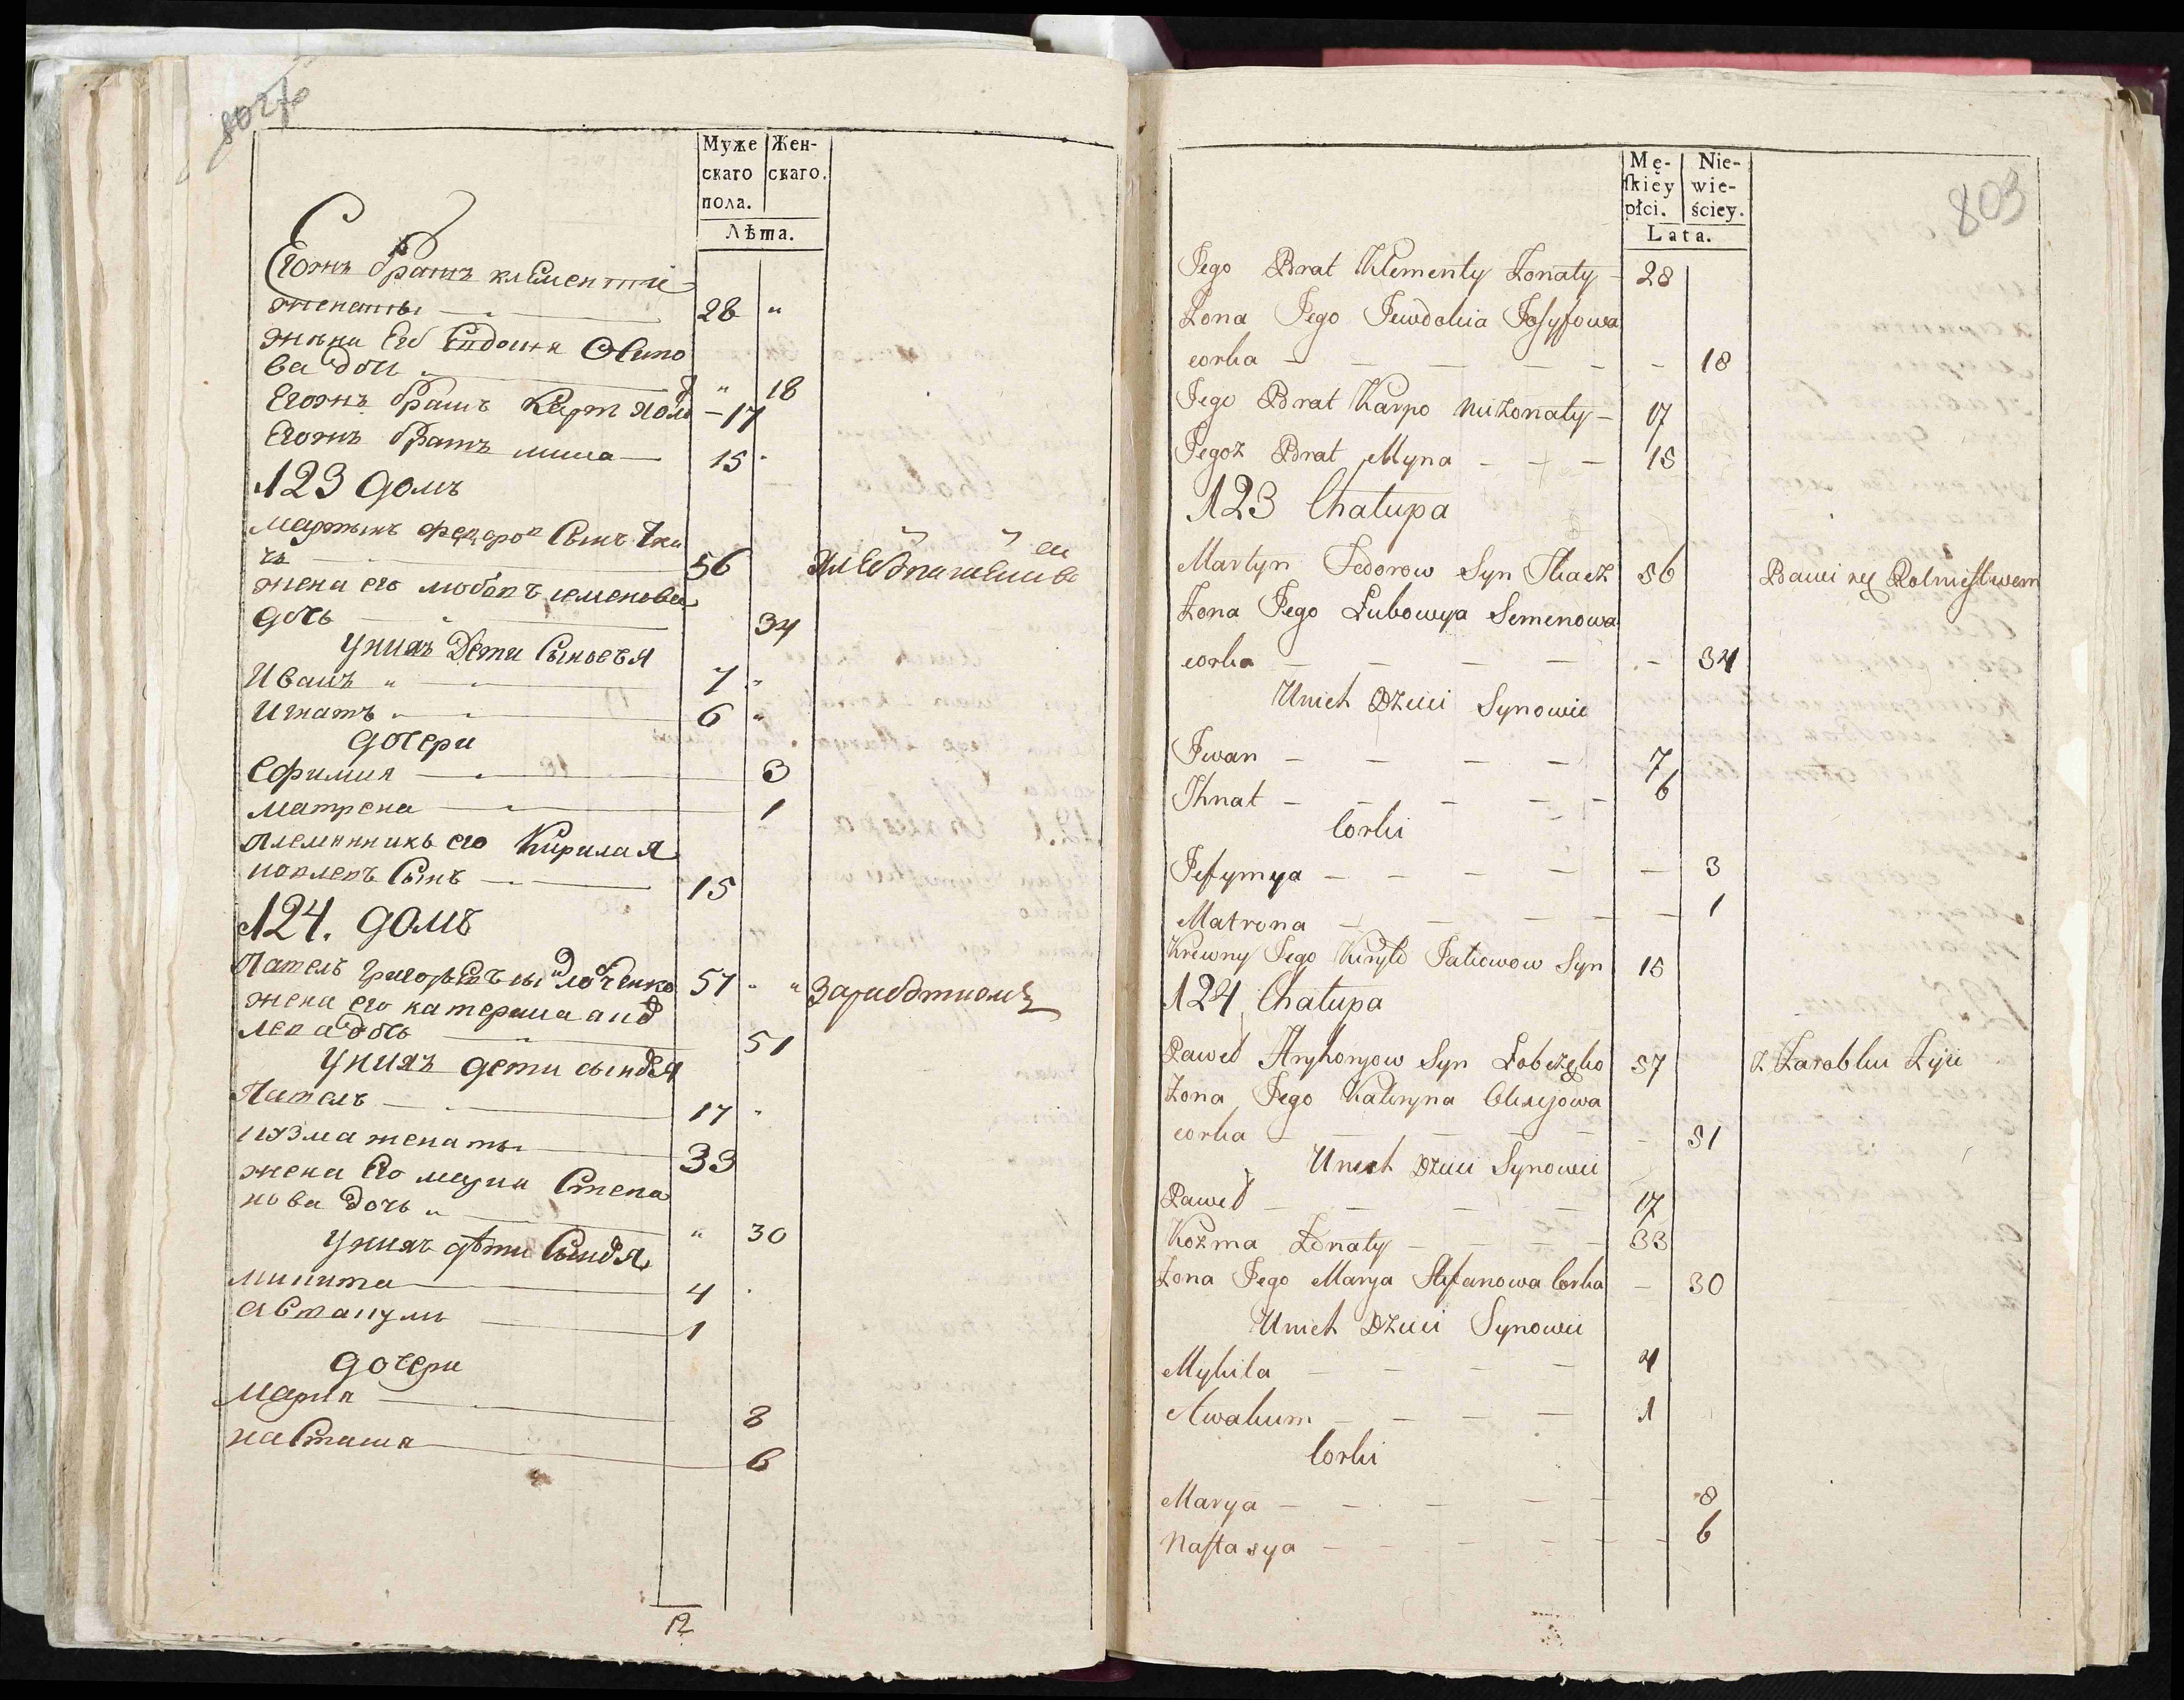 Муже
скаго
пола.
Жен-
скаго.
Лѣта.
Егожъ братъ клементіи
женаты 28 "
жена Его Евдокия Осипо
ва дочь " 18
Егожъ братъ Карп холо - 17
Егожъ братъ мина 15
123 домъ
мартынъ федоров Сынъ тка
чь 56 хлебпашеством
жена его любов семенова
дочь 34
у нихъ Дети Сыновья
Иванъ " 7 "
Игнатъ 6 "
дочери
Ефимия 3
матрена 1
племянникъ его Кирила я
ковлевъ Сынъ 15
124. домъ
Павелъ григорьевъ сы лобченко 57 " "
жена его катерина
дочь 51
у нихъ дети сыновья
Павелъ 17 "
кузма женаты 33
жена Его мария Степа
нова дочь " " 30
у нихъ дѣти Сыновья
микита 4
авакумъ 1
дочери
Мария 8
настасия 6
12
803
Mę-
skiey
płci.
Nie-
wie-
ściey.
Lata.
Jego Brat Klementy Żonaty - 28
Żona Jego Jewdokia Josyfowa
corka - 18
Jego Brat Karpo nieżonaty - 17
Jegoż Brat Myna - 15
123 Chałupa
Martyn Fedorow Syn Tkacz 56 Bawi się Rolnictwem
Żona Jego Lubowya Semenowa
corka - 34
U nich Dzieci Synowie
Iwan - 7
Ihnat - 6
Corki
Jefymya - 3
Matrona - 1
Krewny Jego Kiryło Jakowow Syn 15
124 Chałupa
Paweł Hryhoryow Syn Łobczęko 57 z Zarobku żyie
Żona Jego Kateryna Olexijowa
corka - 51
U nich Dzieci Synowie
Paweł - 17
Kozma Żonaty - 33
Żona Jego Marya Stefanowa Corka - 30
U nich Dzieci Synowie
Mykita - 4
Awakum - 1
Corki
Marya - 8
Nastasya - 6